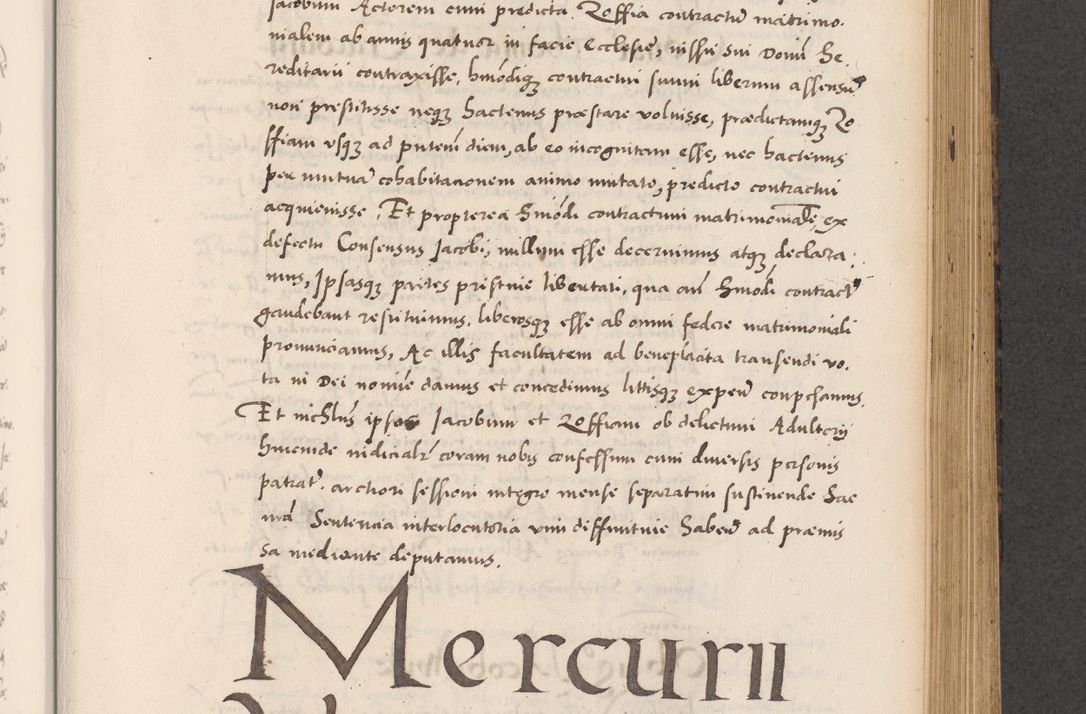 Jacobum Actorem cum predicta Zoffia contractū matrimo.
nialem ab annis quatuor in facie Ecclesie, nissu sui Domī he.
reditarii contraxisse, hmōdiqꝫ contractui suum liberum assensū
non prestitisse neqꝫ hactenus præstare voluisse, prædictamqꝫ Zo
ffiam vsqꝫ ad pntem diem, ab eo incognitam esse, nec hactenus
per mutuā cohabitationem animo mutato, predicto contractui
acquievisse, Et propterea hmōdi contractum matrimonialē, ex
defectu Consensus Jacobi, nullum esse decernimus atqꝫ declara.
mus, Ipsasqꝫ partes pristinæ libertati, qua añ hmōdi contractū
gaudebant restituimus, liberosqꝫ esse ab omni federe matrimoniali
pronunciamus, Ac illis facultatem ad beneplacita transeundi vo.
ta in Dei nomīe damus et concedimus
Et nichlus ipsos Jacobum et Zoffiam ob delictum Adulterij
coram nobis confessum cum diversis personis
patratū arctiori sessioni integro mense separatim sustinende hac
nrā Sententia interlocutoria vim diffinitivæ habeñ ad præmis
sa mediante deputamus.
Mercurii